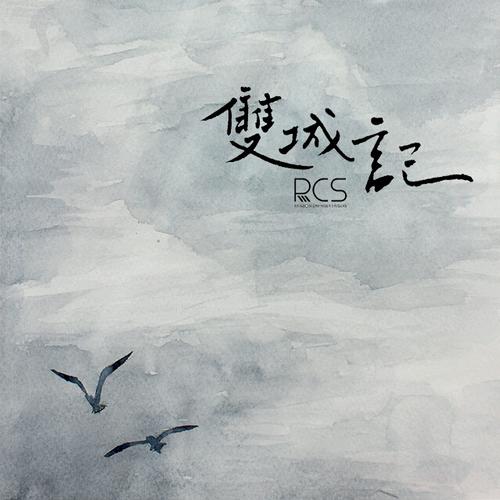 雙城記
RCS